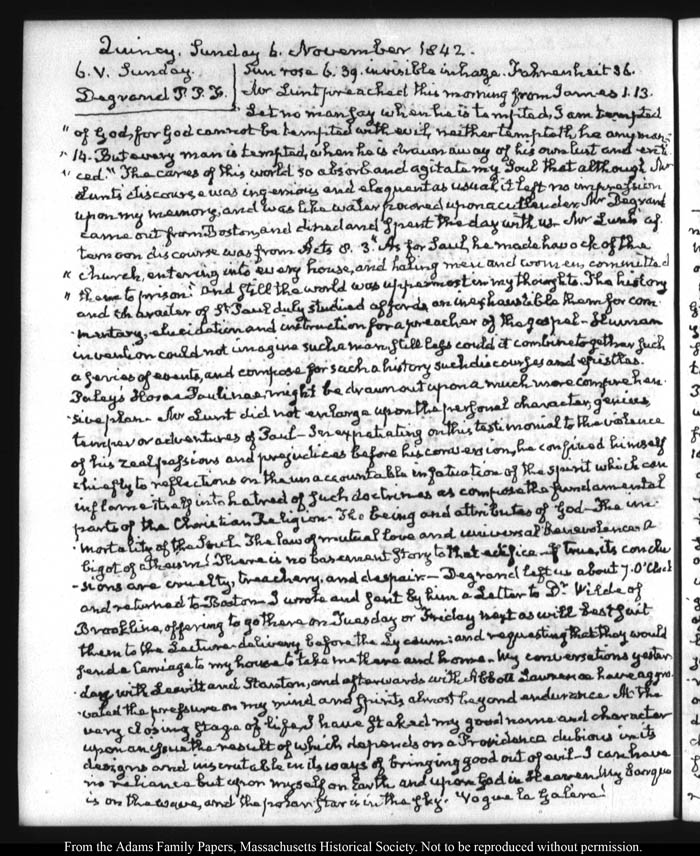 Quincy. Sunday 6. November 1842.
6. V. Sunday.
Degrand P. P. F.
Sun rose 6. 39. invisible in haze. Fahrenheit 36.
Mr Lunt preached this morning from James 1. 13.
Let no man say when he is tempted, I am tempted
" of God, for God cannot be tempted with evil, neither tempteth he any man.
" 14. But every man is tempted, when he is drawn away of his own lust and enti
" ced." The cares of this world so absorb and agitate my Soul that although Mr
Lunts discourse was ingenious and eloquent as usual, it left no impression
upon my memory, and was like water poured upon a cullender. Mr Degrand
came out from Boston, and dined and spent the day with us. Mr Lunt's af
ternoon discourse was from Acts 8. 3. "As for Saul, he made havock of the
" church, entering into every house, and haling men and women, committed
" them to prison." and still the world was uppermost in my thoughts. The history
and character of St Paul duly studied affords an inexhaustible them for com
mentary, elucidation and instruction for a preacher of the gospel - Human
invention could not imagine such a man, still less could it combine together such
a series of events, and compose for such a history such discourses and epistles.
Paley's Horae Paulinae, might be drawn out upon a much more comprehen
sive plan. Mr Lunt did not enlarge upon the personal character, genius,
temper or adventures of Paul - In expatiating on this testimonial to the violence
of his zeal passions and prejudices before his conversion, he confined himself
chiefly to reflections on the unaccountable infatuation of the spirit which can
inflame itself into hatred of such doctrines as compose the fundamental
parts of the Christian Religion - The being and attributes of God - The im
mortality of the Soul. The law of mutual love and universal Benevolence. A
bigot of atheism! There is no basement story to that edifice - If true, its conclu
sions are cruelty, treachery, and despair - Degrand left us about 7. O'Clock
and returned to Boston - I wrote and sent by him a Letter to Dr Wilde of
Brookline, offering to go there on Tuesday or Friday next as will best suit
them to the Lecture delivery before the Lyceum: and requesting that they would
send a Carriage to my house to take me there and home. My conversations yester
day with Leavitt and Stanton, and afterwards with Abbott Lawrence have aggra
vated the pressure on my mind and spirits almost beyond endurance. At the
very closing stage of life, I have staked my good name and character
upon an issue the result of which depends on a Providence dubious in its
designs and inscrutable in its ways of bringing good out of evil - I can have
no reliance but upon myself on Earth and upon God in Heaven. My barque
is on the wave, and the polar star is in the sky. Vogue la Galera!
From the Adams Family Papers, Massachusetts Historical Society. Not to be reproduced without permission.